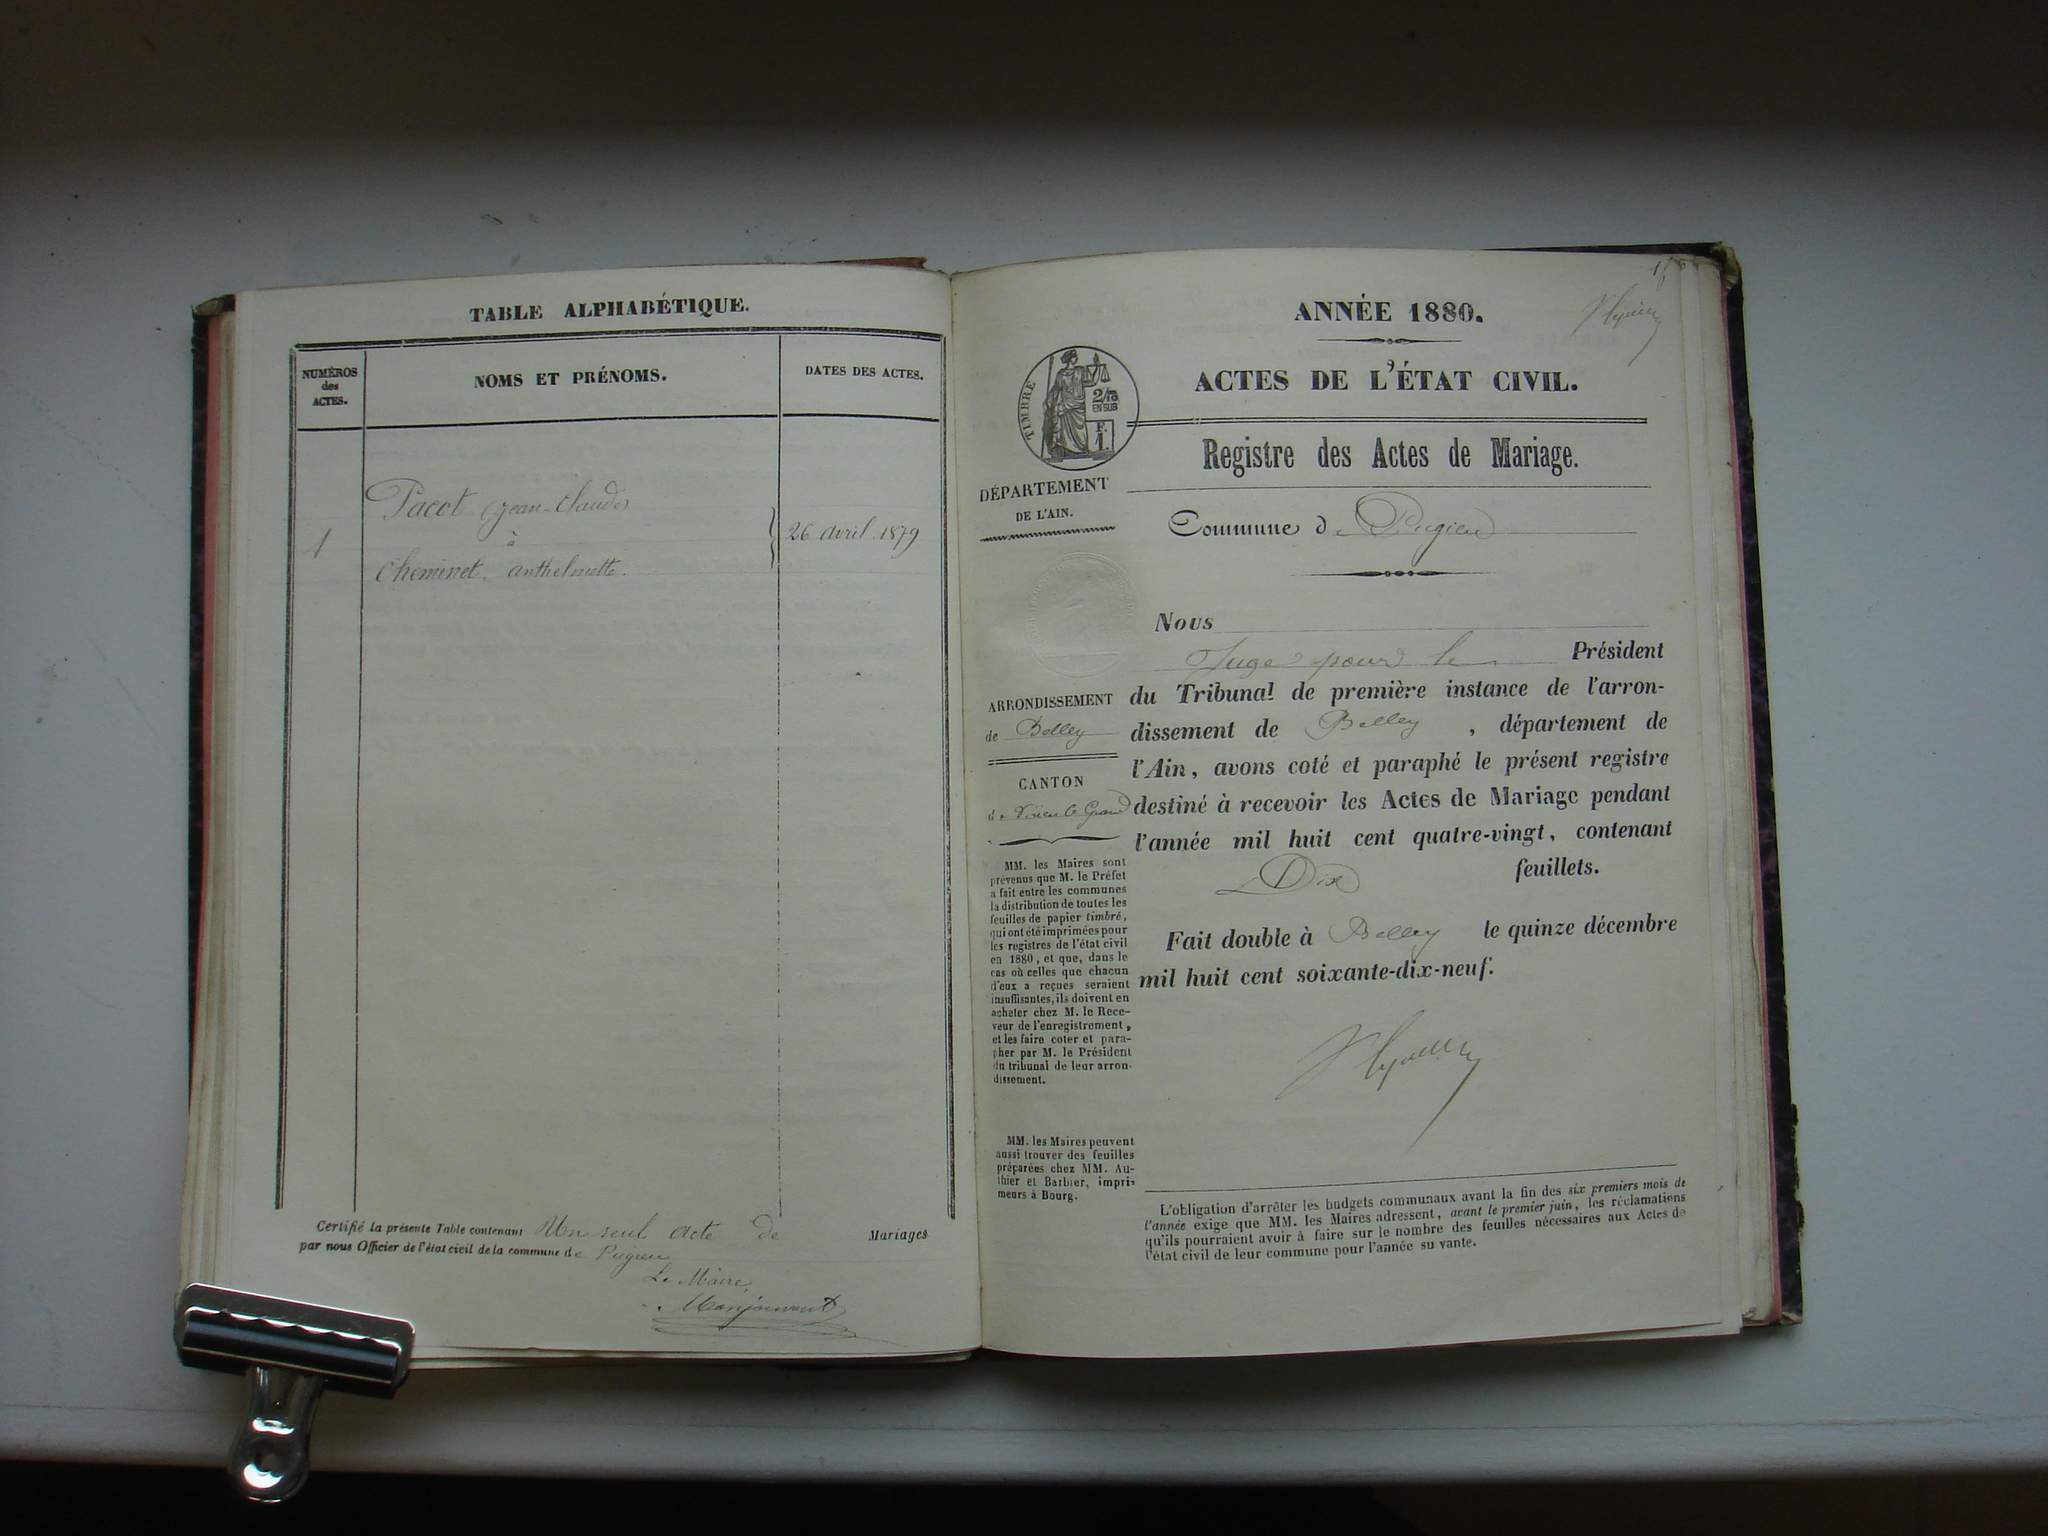 TABLE ALPHABÉTIQUE.
NUMÉROS
des
ACTES.
NOMS ET PRÉNOMS.
DATES DES ACTES.
Pacot (Jean-Claude)
1
à
26 avril 1879
Cheminet anthelmette.
Certifié la présente Table contenant Un seul acte de Mariages
par nous Officier de l'état civil de la commune de Pugieu
Le Maire,
Monjouvent
ANNÉE 1880.
ACTES DE L'ÉTAT CIVIL.
TIMBRE
2/10
EN SUS
F.
1.
Registre des Actes de Mariage.
DÉPARTEMENT
DE L'AIN.
Commune de Pugieu
Nous
Juge pour le Président
du Tribunal de première instance de l'arron-
dissement de Belley, département de
l'Ain, avons coté et paraphé le présent registre
destiné à recevoir les Actes de Mariage pendant
l'année mil huit cent quatre-vingt, contenant
Dix feuillets.
Fait double à Belley le quinze décembre
mil huit cent soixante-dix-neuf.
ARRONDISSEMENT
de Belley
CANTON
de Virieu le Grand
MM. les Maires sont
prévenus que M. le Préfet
a fait entre les communes
la distribution de toutes les
feuilles de papier timbré,
qui ont été imprimées pour
les registres de l'état civil
en 1880, et que, dans le
cas où celles que chacun
d'eux a reçues seraient
insuffisantes, ils doivent en
acheter chez M. le Rece-
veur de l'enregistrement,
et les faire coter et para-
pher par M. le Président
du tribunal de leur arron-
dissement.
MM. les Maires peuvent
aussi trouver des feuilles
préparées chez MM. Au-
thier et Barbier, impri-
meurs à Bourg.
L'obligation d'arrêter les budgets communaux avant la fin des six premiers mois de
l'année exige que MM. les Maires adressent, avant le premier juin, les réclamations
qu'ils pourraient avoir à faire sur le nombre des feuilles nécessaires aux Actes de
l'état civil de leur commune pour l'année su vante.